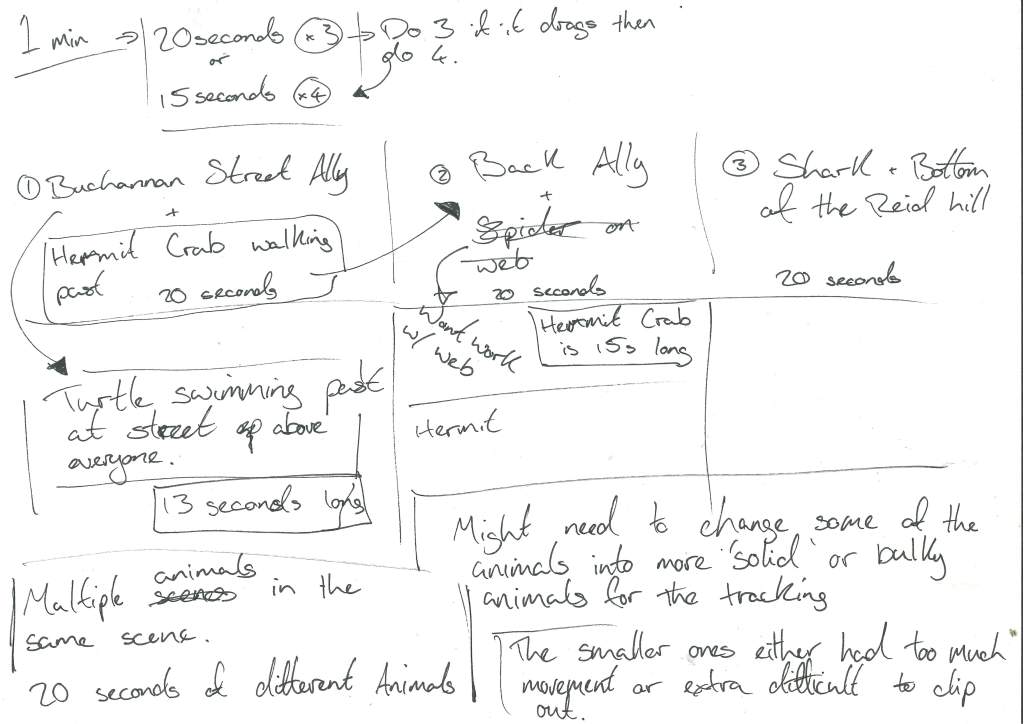 1 min → 20 seconds ×3 → Do 3 if it drags then
or do 4.
15 seconds ×4
① Buchannan Street Ally
+
Hermit Crab walking
past 20 seconds
Turtle swimming past
at street up above
everyone.
13 seconds long
Multiple animals scenes in the
same scene.
20 seconds of different Animals
② Back Ally
+
Spider on
web
20 seconds
Wont work
w/ web
Hermit Crab
is 15s long
Hermit
③ Shark + Bottom
of the Reid hill
20 seconds
Might need to change some of the
animals into more 'solid' or bulky
animals for the tracking
The smaller ones either had too much
movement or extra difficult to clip
out.